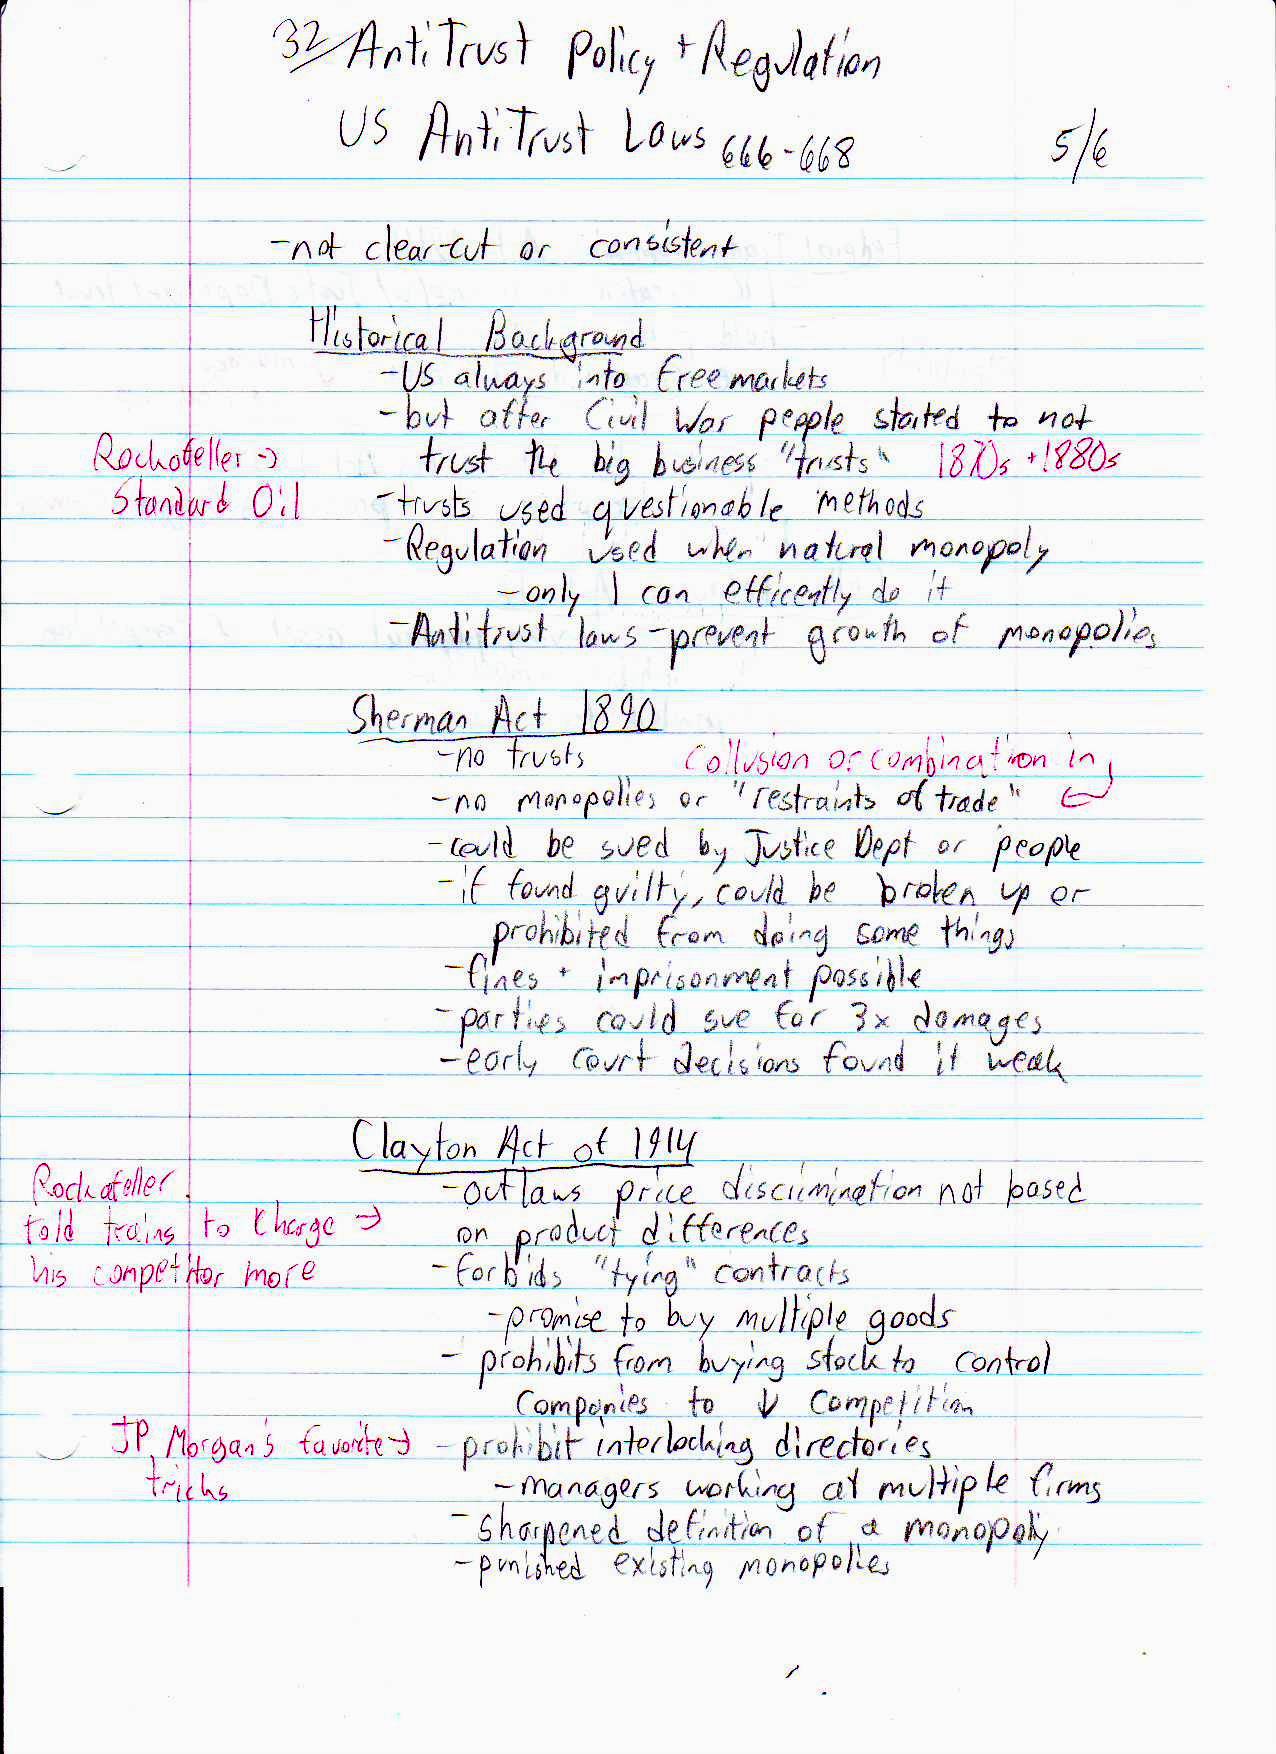 32/ AntiTrust Policy + Regulation
US AntiTrust Laws 666-668 5/6
-not clear-cut or consistent
Historical Background
-US always into free markets
-but after Civil War people started to not
Rockofeller → trust the big business "trusts" 1870s + 1880s
Standard Oil -trusts used questionable methods
-Regulation used when natural monopoly
-only 1 can efficently do it
-Antitrust laws -prevent growth of monopolies
Sherman Act 1890
-no trusts Collusion or combination in
-no monopolies or "restraints of trade" ←
-could be sued by Justice Dept or people
-if found guilty, could be broken up or
prohibited from doing some things
-fines + imprisonment possible
-parties could sue for 3x damages
-early court decisions found it weak
Clayton Act of 1914
Rockafeller -outlaws price discrimination not based
told trains to charge → on product differences
his competitor more -forbids "tying" contracts
-promise to buy multiple goods
- prohibits from buying stock to control
companies to ↓ competition
JP Morgan's favorite → -prohibit interlocking directories
tricks -managers working at multiple firms
-sharpened definition of a monopoly
-punished existing monopolies